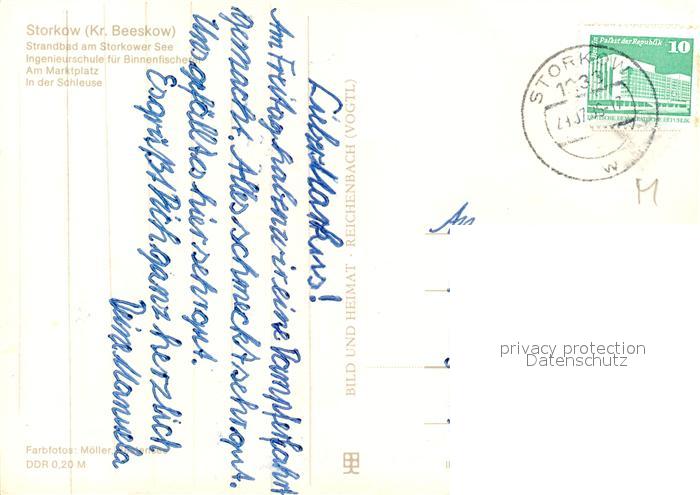 Storkow (Kr. Beeskow)
Strandbad am Storkower See
Ingenieurschule für Binnenfischerei
Am Marktplatz
In der Schleuse
Lieber Markus!
Am Freitag haben wir eine Dampferfahrt
gemacht. Alles schmeckt sehr gut.
Uns gefällt es hier sehr gut.
Es grüßt Dich ganz herzlich
Deine Manuela
Farbfotos: Möller,
DDR 0,20 M
BILD UND HEIMAT · REICHENBACH (VOGTL)
An
Palast der Republik 10
DEUTSCHE DEMOKRATISCHE REPUBLIK
STORKOW
1233
w
M
privacy protection
Datenschutz